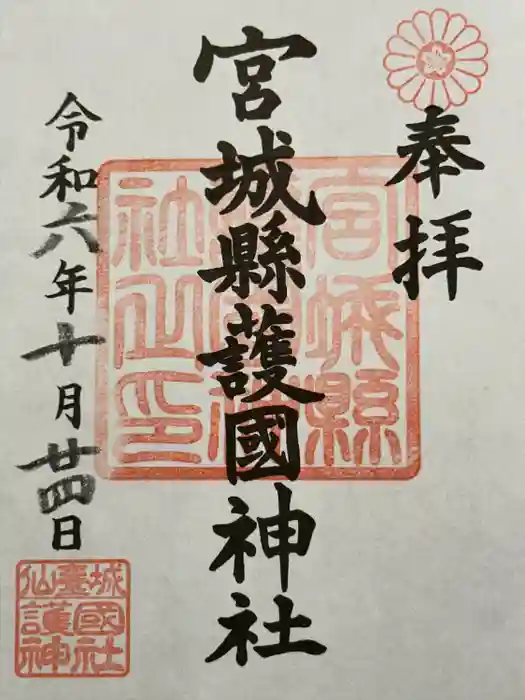 奉拝
宮城縣護國神社
宮城縣
社之印
令和六年十月廿四日
仙臺城
護國
神社